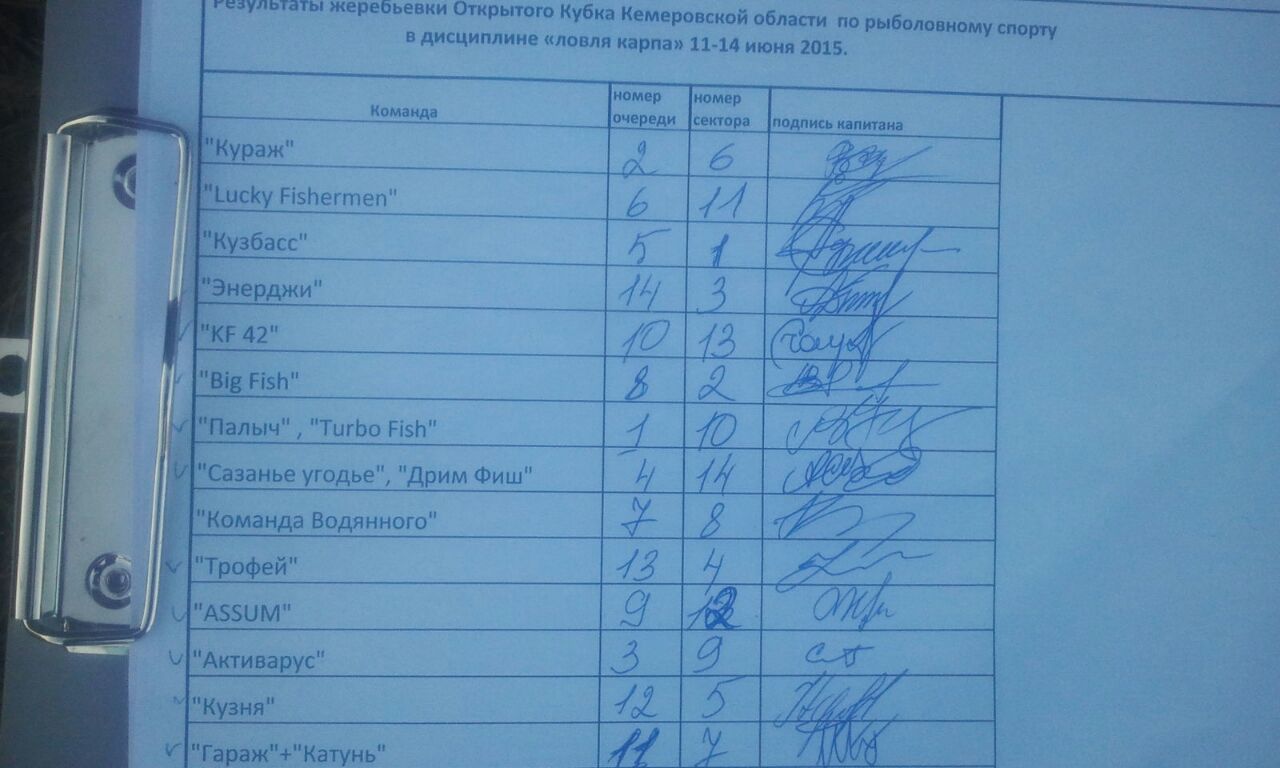 Результаты жеребьевки Открытого Кубка Кемеровской области по рыболовному спорту
в дисциплине «ловля карпа» 11-14 июня 2015.
Команда номер очереди номер сектора подпись капитана
"Кураж" 2 6
"Lucky Fishermen" 6 11
"Кузбасс" 5 1
"Энерджи" 14 3
"KF 42" 10 13
"Big Fish" 8 2
"Палыч" , "Turbo Fish" 1 10
"Сазанье угодье", "Дрим Фиш" 4 14
"Команда Водянного" 7 8
"Трофей" 13 4
"ASSUM" 9 12
"Активарус" 3 9
"Кузня" 12 5
"Гараж"+"Катунь" 11 7